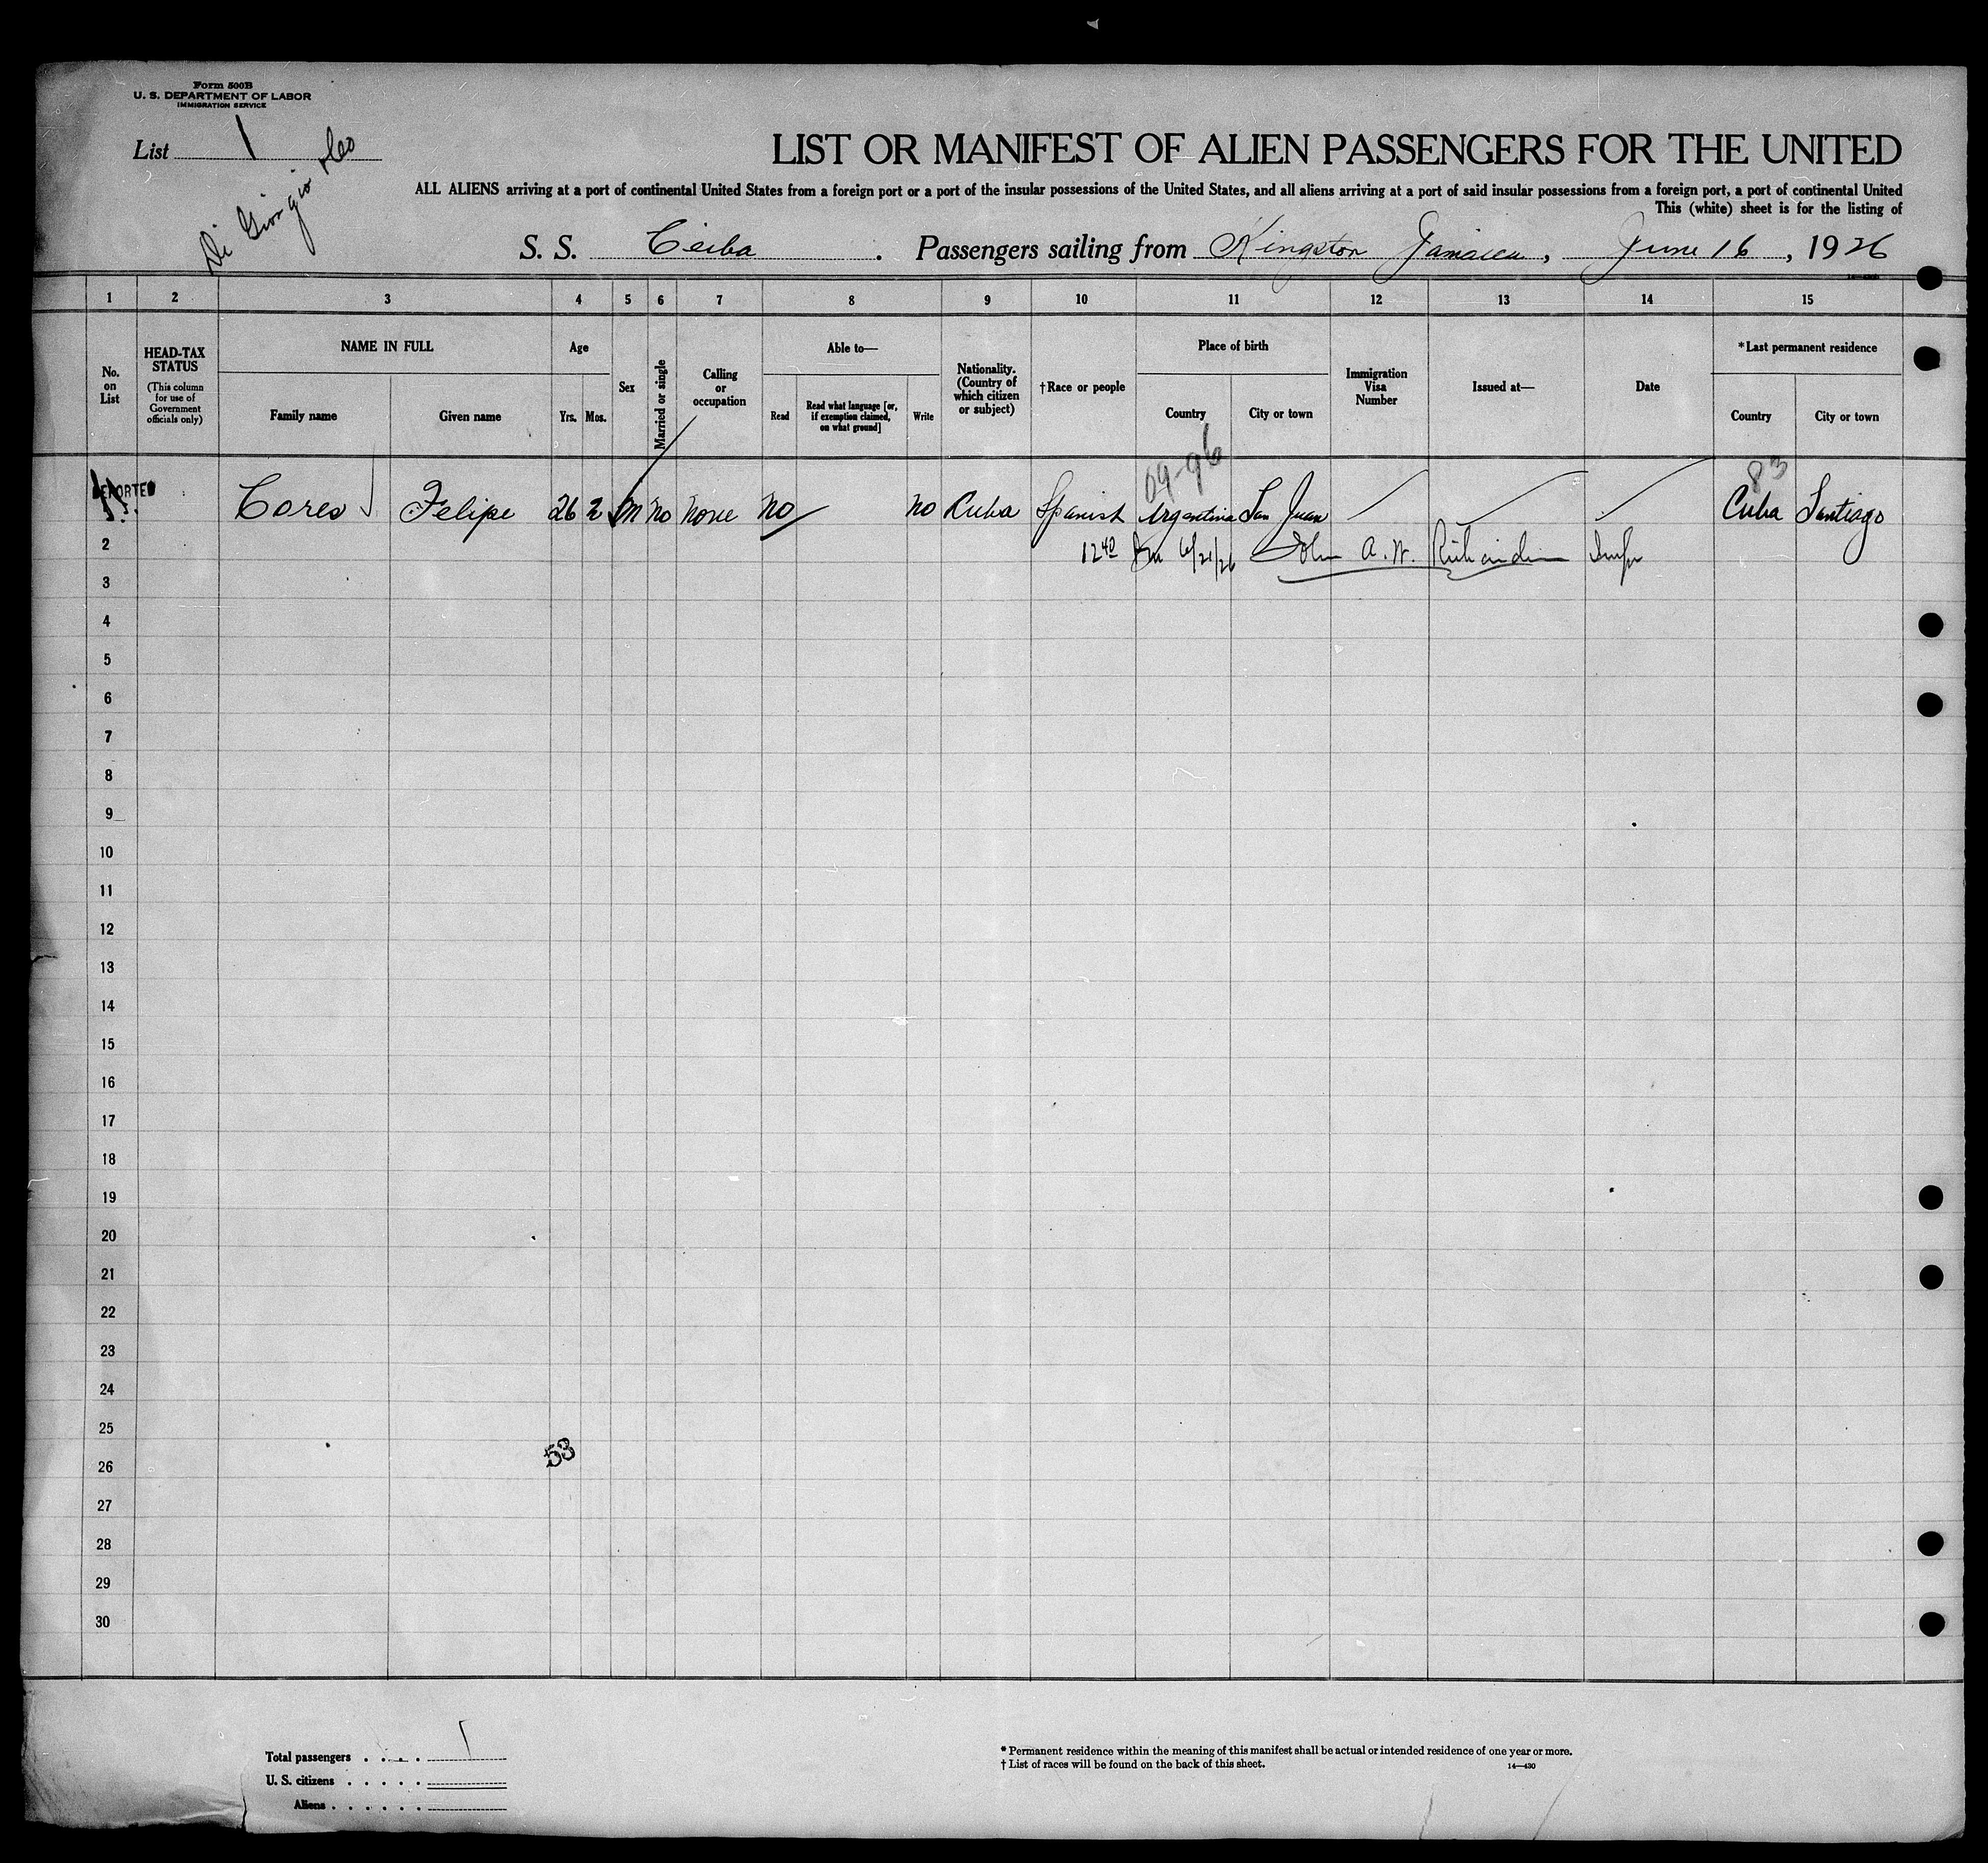 Form 500B
U. S. DEPARTMENT OF LABOR
IMMIGRATION SERVICE
List 1
Di Giorgio
LIST OR MANIFEST OF ALIEN PASSENGERS FOR THE UNITED
ALL ALIENS arriving at a port of continental United States from a foreign port or a port of the insular possessions of the United States, and all aliens arriving at a port of said insular possessions from a foreign port, a port of continental United
This (white) sheet is for the listing of
S. S. Ceiba . Passengers sailing from Kingston Jamaica, June 16, 1926
1 2 3 4 5 6 7 8 9 10 11 12 13 14 15
No. on List
HEAD-TAX STATUS
(This column for use of Government officials only)
NAME IN FULL
Family name
Given name
Age
Yrs. Mos.
Sex
Married or single
Calling or occupation
Able to—
Read
Read what language [or, if exemption claimed, on what ground]
Write
Nationality. (Country of which citizen or subject)
†Race or people
Place of birth
Country
City or town
Immigration Visa Number
Issued at—
Date
*Last permanent residence
Country
City or town
09-96
83
DEPORTED
Cores Felipe 26 2 M No None No No Cuba Spanish Argentina San Juan Cuba Santiago
2
12 40 6/21/26 John A. W. Richardson Insp
3
4
5
6
7
8
9
10
11
12
13
14
15
16
17
18
19
20
21
22
23
24
25
53
26
27
28
29
30
Total passengers . . . . 1
U. S. citizens . . . . .
Aliens . . . . . .
* Permanent residence within the meaning of this manifest shall be actual or intended residence of one year or more.
† List of races will be found on the back of this sheet.
14—430